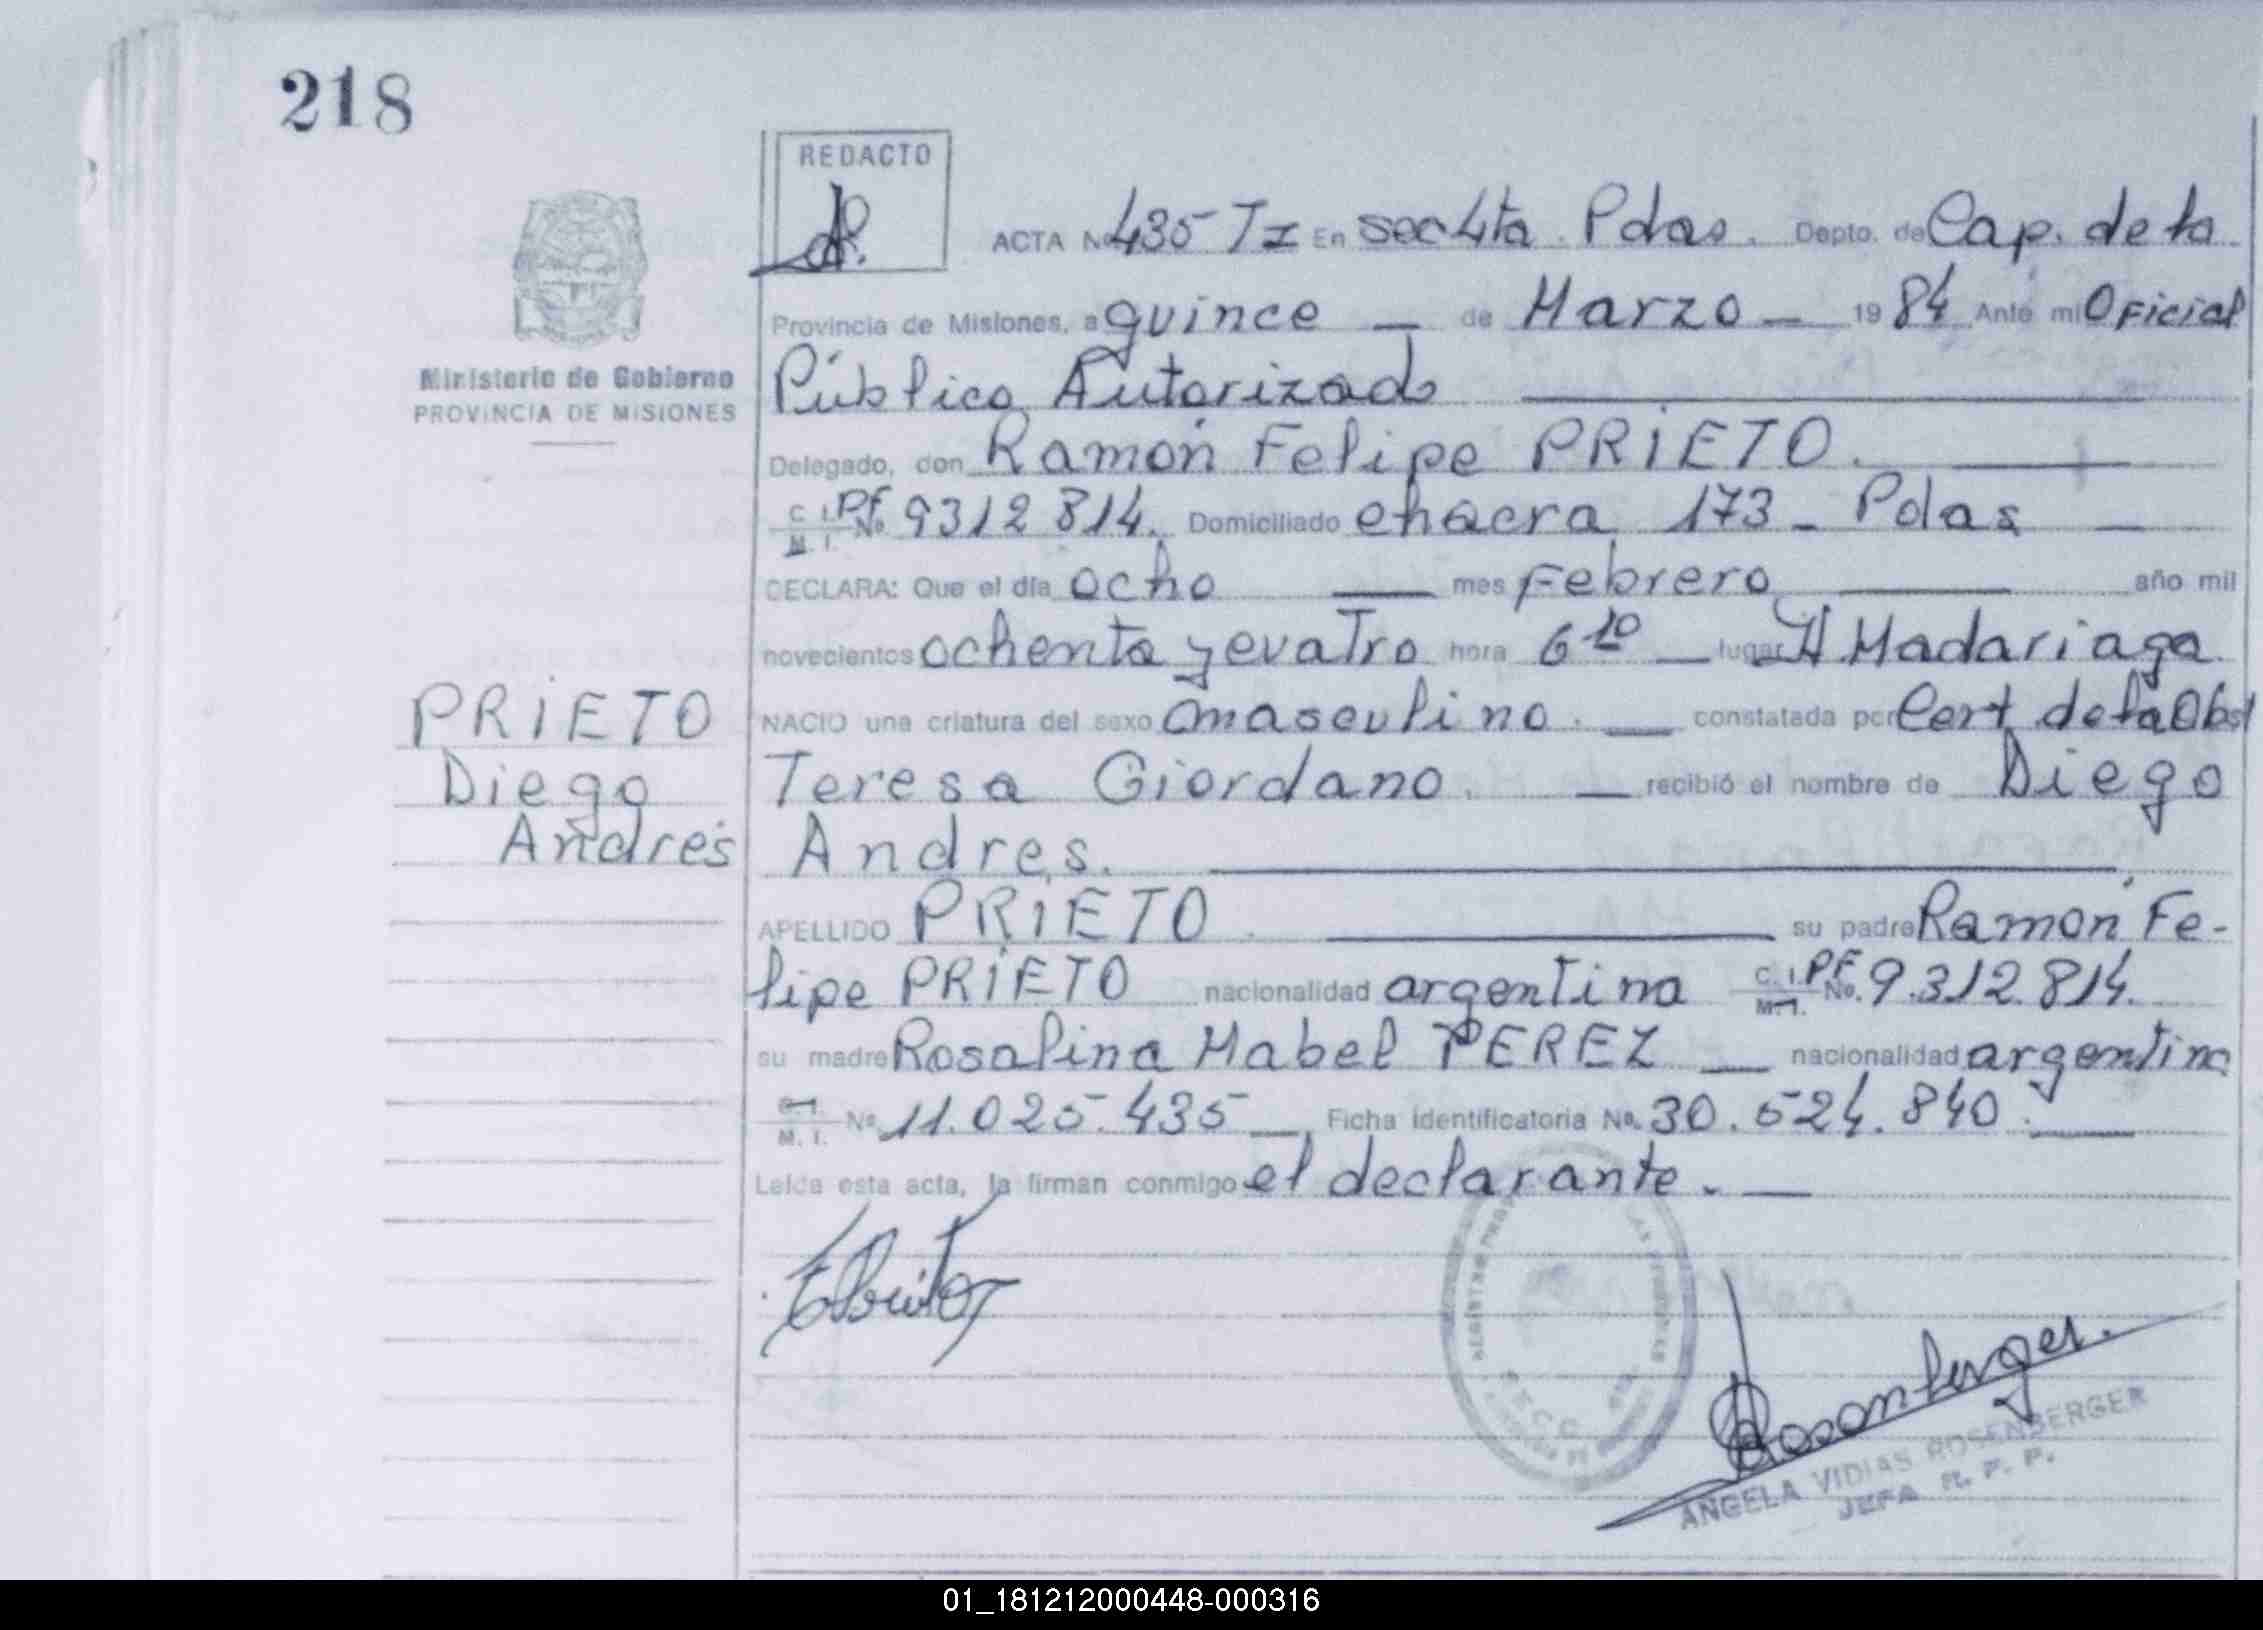 218
REDACTO
ACTA No 435 TI En secc 4ta. Pdas. Depto. de Cap. de la
Provincia de Misiones, a quince — de Marzo — 19 84 Ante mi Oficial
Ministerio de Gobierno
PROVINCIA DE MISIONES
Público Autorizado
Delegado, don Ramón Felipe PRIETO.
C. I. PF No. 9312814. Domiciliado chacra 173 - Pdas —
M. I.
DECLARA: Que el día ocho — mes Febrero — año mil
novecientos ochenta y cuatro hora 6 10 — lugar H. Madariaga
PRIETO
NACIO una criatura del sexo masculino. — constatada por Cert de la Obst
Diego
Teresa Giordano. — recibió el nombre de Diego
Andrés
Andres.
APELLIDO PRIETO. — su padre Ramón Fe-
lipe PRIETO nacionalidad argentina C. I. PF No. 9.312.814.
M. I.
su madre Rosalina Mabel PEREZ — nacionalidad argentina
C. I.
M. I. No 11.025.435 — Ficha identificatoria No. 30.524.840. —
Leída esta acta, la firman conmigo el declarante. —
ANGELA VIDIAS ROSENBERGER
JEFA R. P. P.
01_181212000448-000316